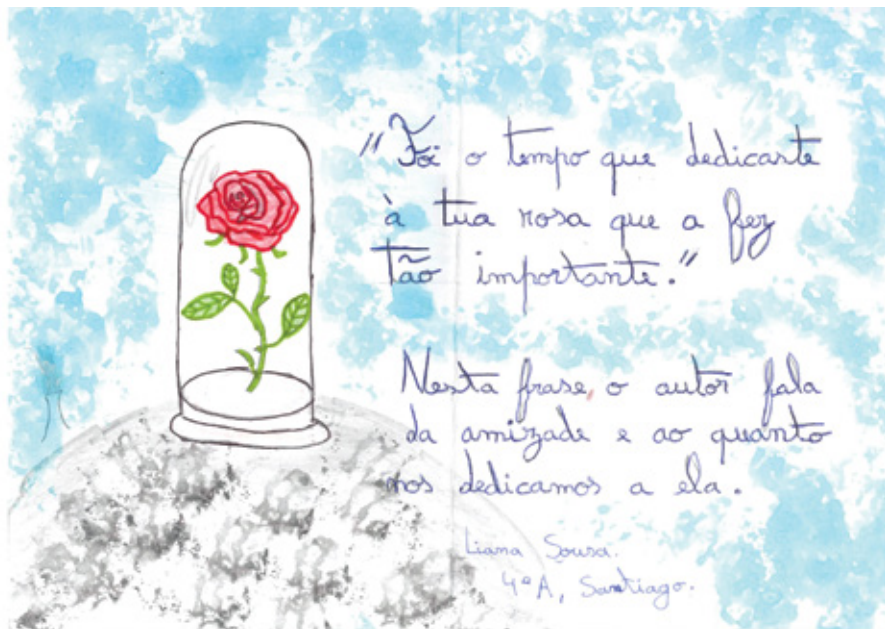 "Foi o tempo que dedicaste
à tua rosa que a fez
tão importante."
Nesta frase, o autor fala
da amizade e ao quanto
nos dedicamos a ela.
Liana Sousa.
4º A, Santiago.